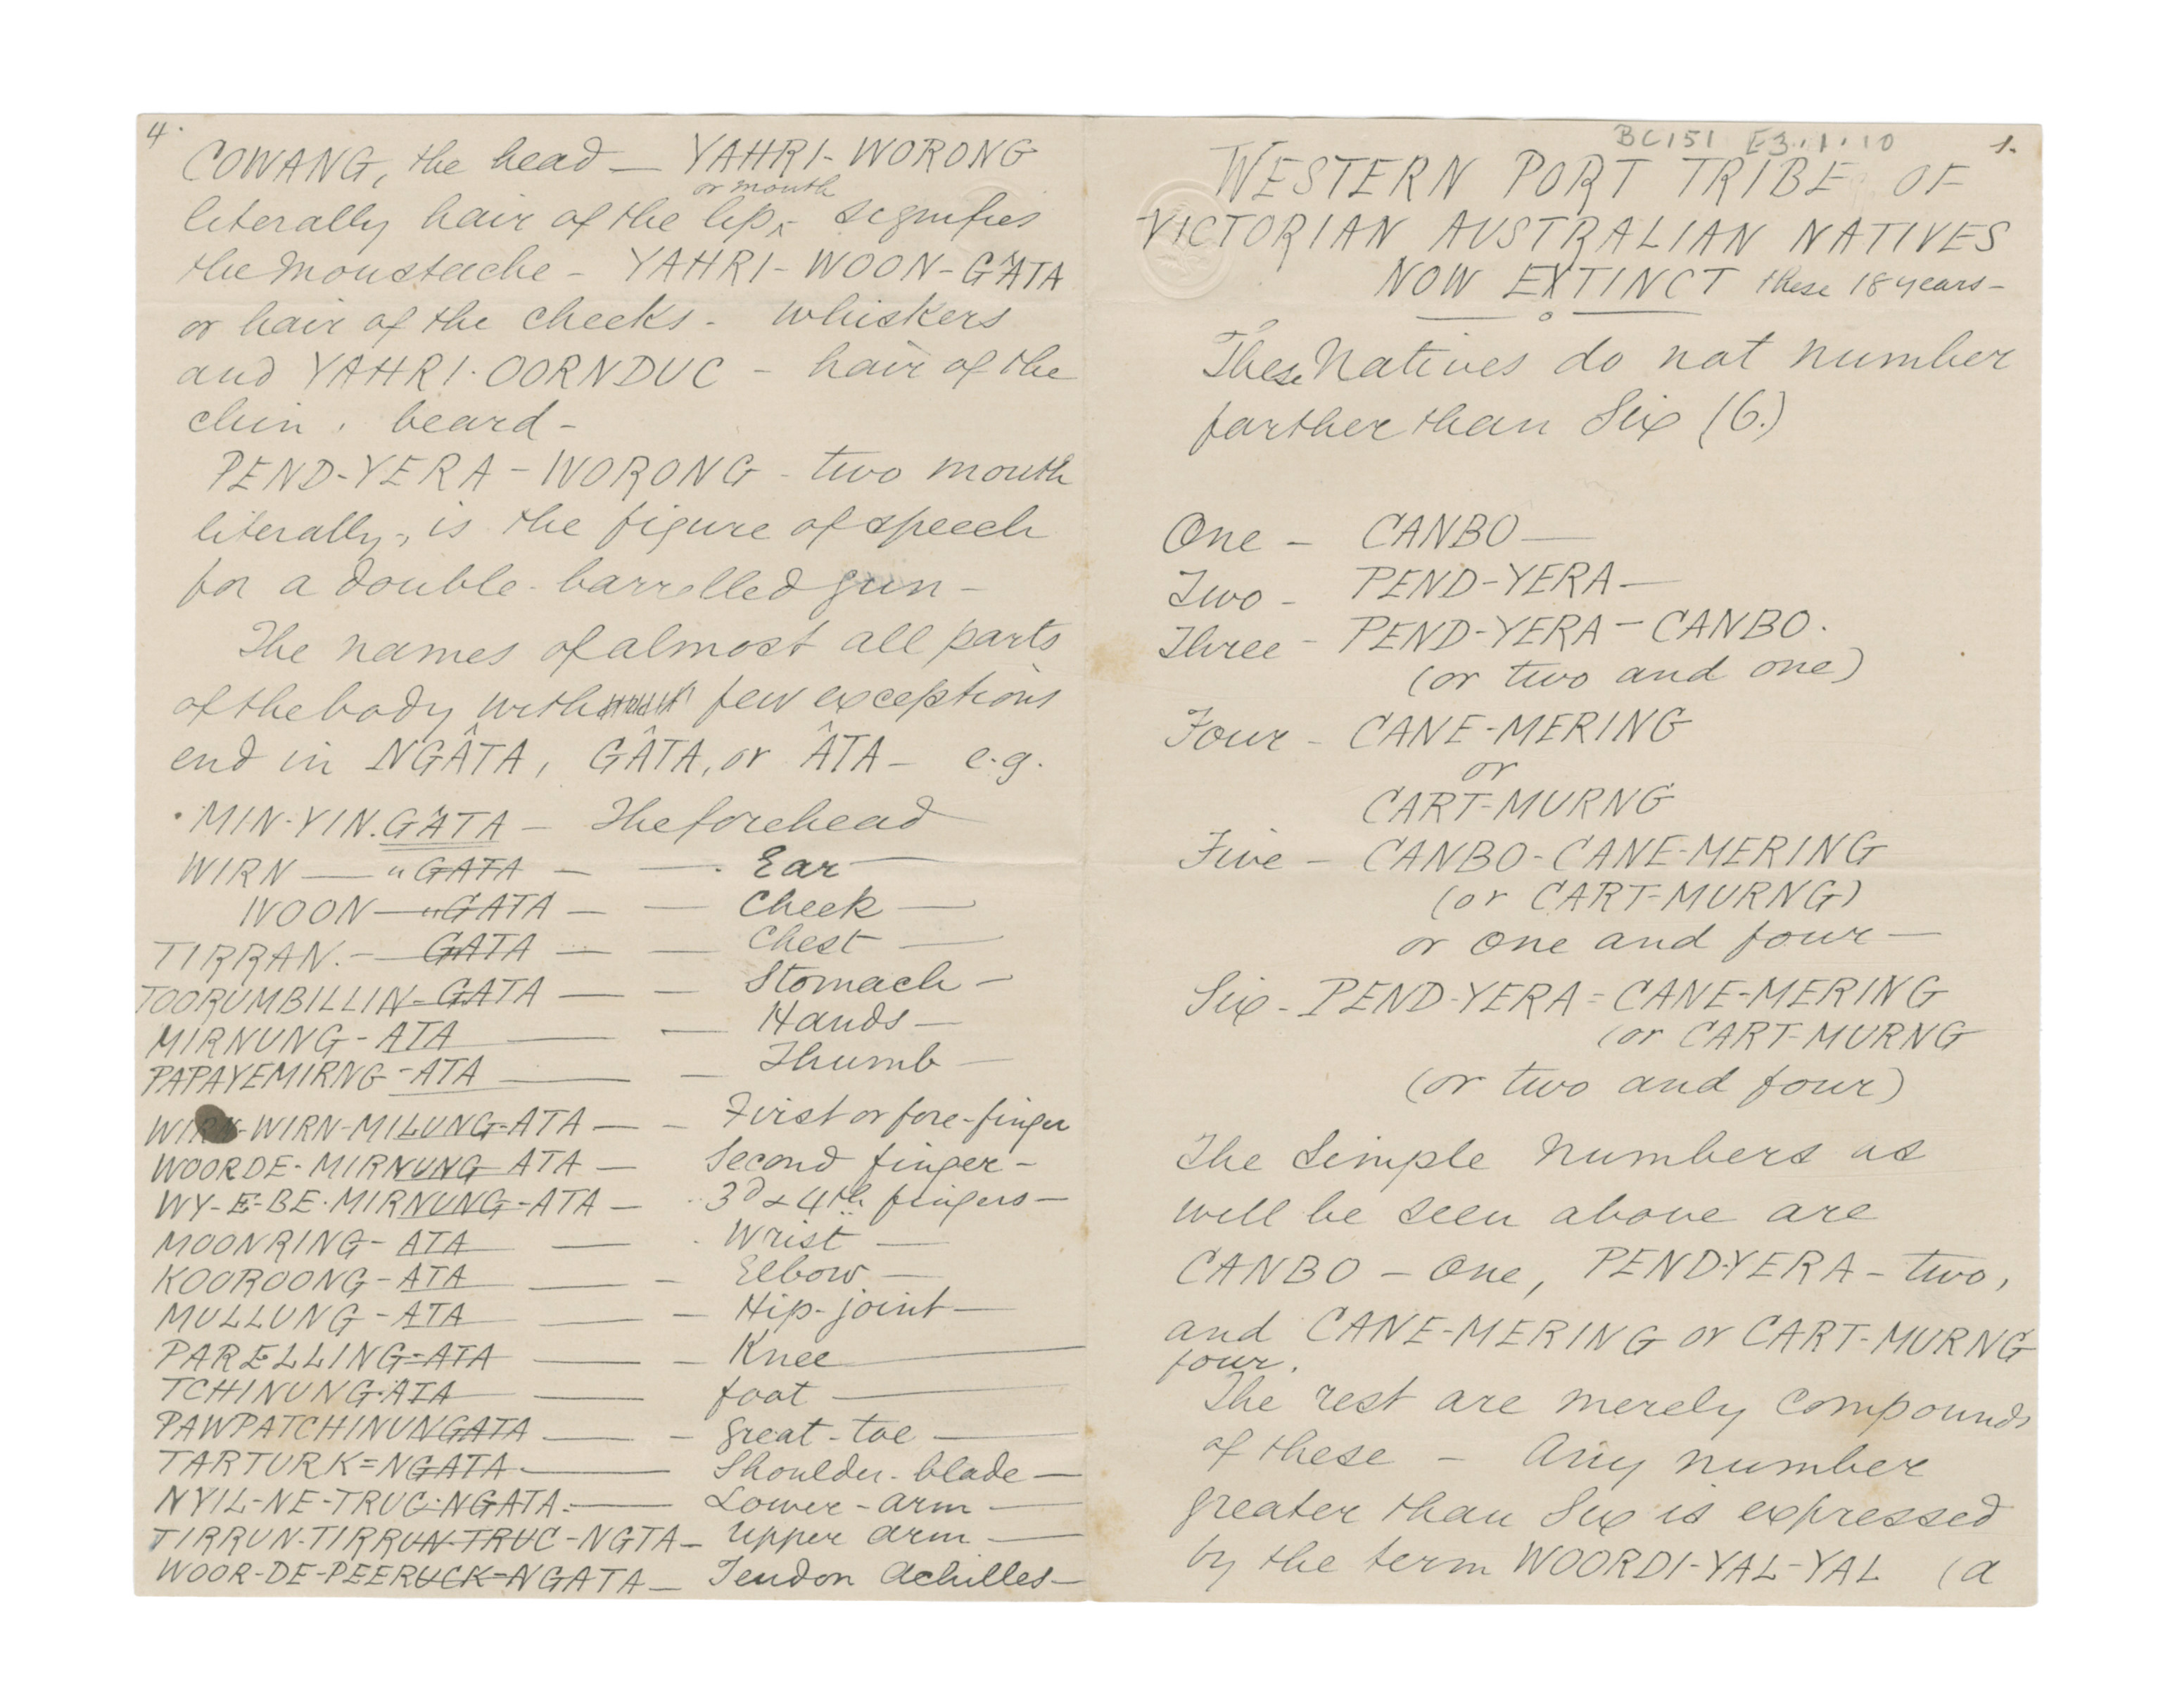 4.
COWANG, the head — YAHRI-WORONG
or mouth
literally hair of the lip, ‸ signifies
the Moustache - YAHRI-WOON-GÂTA
or hair of the cheeks - whiskers
and YAHRI-OORNDUC - hair of the
chin, beard -
PEND-YERA-WORONG - two mouth
literally, is the figure of speech
for a double-barrelled gun -
The names of almost all parts
of the body with few exceptions
end in NGÂTA, GÂTA, or ÂTA - e.g.
MIN-YIN.GÂTA - The forehead
WIRN — " GATA - — Ear —
WOON — " GATA - — Cheek —
TIRRAN. — GATA — — Chest —
TOORUMBILLIN-GATA — — Stomach -
MIRNUNG-ATA — Hands —
PAPAYEMIRNG-ATA — — Thumb —
WIRN-WIRN-MILUNG-ATA — - First or fore-finger
WOORDE-MIRNUNG ATA — Second finger -
WY-E-BE-MIRNUNG-ATA — 3d & 4th fingers -
MOONRING-ATA — Wrist —
KOOROONG-ATA — - Elbow —
MULLUNG-ATA — - Hip-joint —
PARELLING-ATA — - Knee —
TCHINUNG-ATA — foot —
PAWPATCHINUNGATA — - great-toe —
TARTURK=NGATA — Shoulder-blade —
NYIL-NE-TRUC-NGATA — Lower-arm —
TIRRUN-TIRRUN-TRUC-NGTA - Upper arm —
WOOR-DE-PEERUCK-NGATA — Tendon Achilles —
BC151 E3.1.10
1.
WESTERN PORT TRIBE OF
VICTORIAN AUSTRALIAN NATIVES
NOW EXTINCT these 18 years -
These Natives do not number
farther than Six (6.)
One - CANBO —
Two - PEND-YERA —
Three - PEND-YERA-CANBO.
(or two and one)
Four - CANE-MERING
or
CART-MURNG
Five - CANBO-CANE-MERING
(or CART-MURNG)
or one and four —
Six - PEND-YERA=CANE-MERING
(or CART-MURNG
(or two and four)
The Simple Numbers as
will be seen above are
CANBO - One, PEND-YERA - two,
and CANE-MERING or CART-MURNG
four.
The rest are merely Compounds
of these - Any number
greater than Six is expressed
by the term WOORDI-YAL-YAL (a